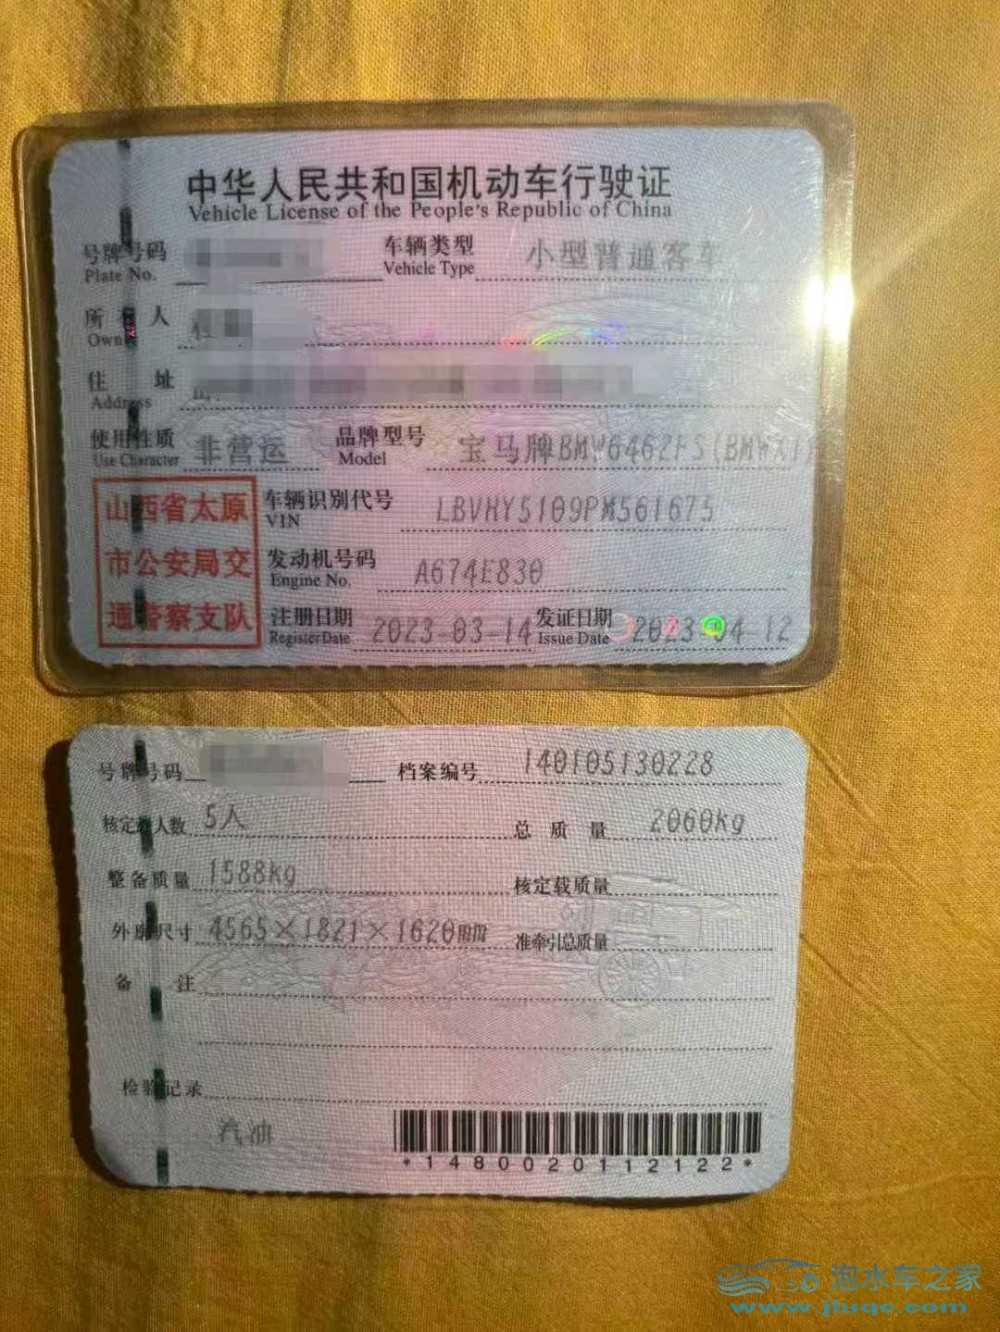 中华人民共和国机动车行驶证
Vehicle License of the People's Republic of China
号牌号码 车辆类型 小型普通客车
Plate No. Vehicle Type
所有人
Owner
住址
Address
使用性质 非营运 品牌型号 宝马牌BMW6462FS(BMWX1)
Use Character Model
山西省太原
市公安局交
通警察支队
车辆识别代号 LBVHY5109PM561675
VIN
发动机号码 A674E830
Engine No.
注册日期 2023-03-14 发证日期 2023-04-12
Register Date Issue Date
号牌号码 档案编号 140105130228
核定载人数 5人 总质量 2060kg
整备质量 1588kg 核定载质量
外廓尺寸 4565×1821×1620mm 准牵引总质量
备注
检验记录
汽油
*1480020112122*
泡水车之家
www.jluqc.com